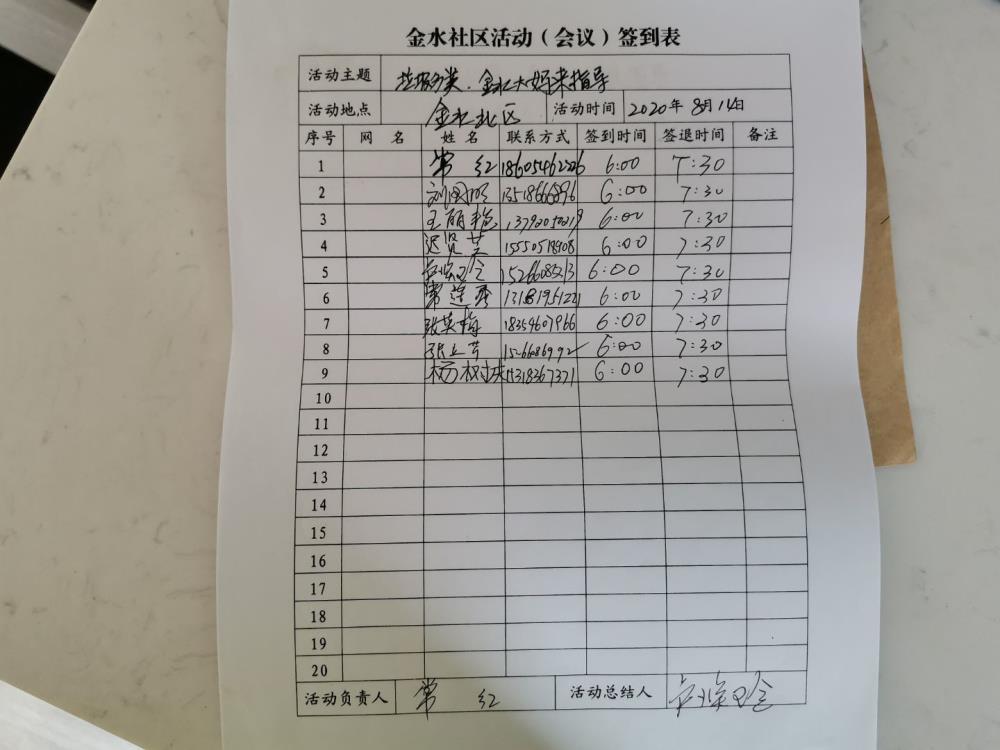 金水社区活动（会议）签到表
活动主题 垃圾分类.金水大妈来指导
活动地点 金水社区 活动时间 2020年8月14日
序号 网 名 姓 名 联系方式 签到时间 签退时间 备注
1 常 红 6:00 7:30
2 刘国明 6:00 7:30
3 王丽艳 6:00 7:30
4 迟贤芝 15550518908 6:00 7:30
5 6:00 7:30
6 常莲秀 6:00 7:30
7 张英梅 18354607966 6:00 7:30
8 张立芹 6:00 7:30
9 杨 6:00 7:30
10
11
12
13
14
15
16
17
18
19
20
活动负责人 常 红 活动总结人